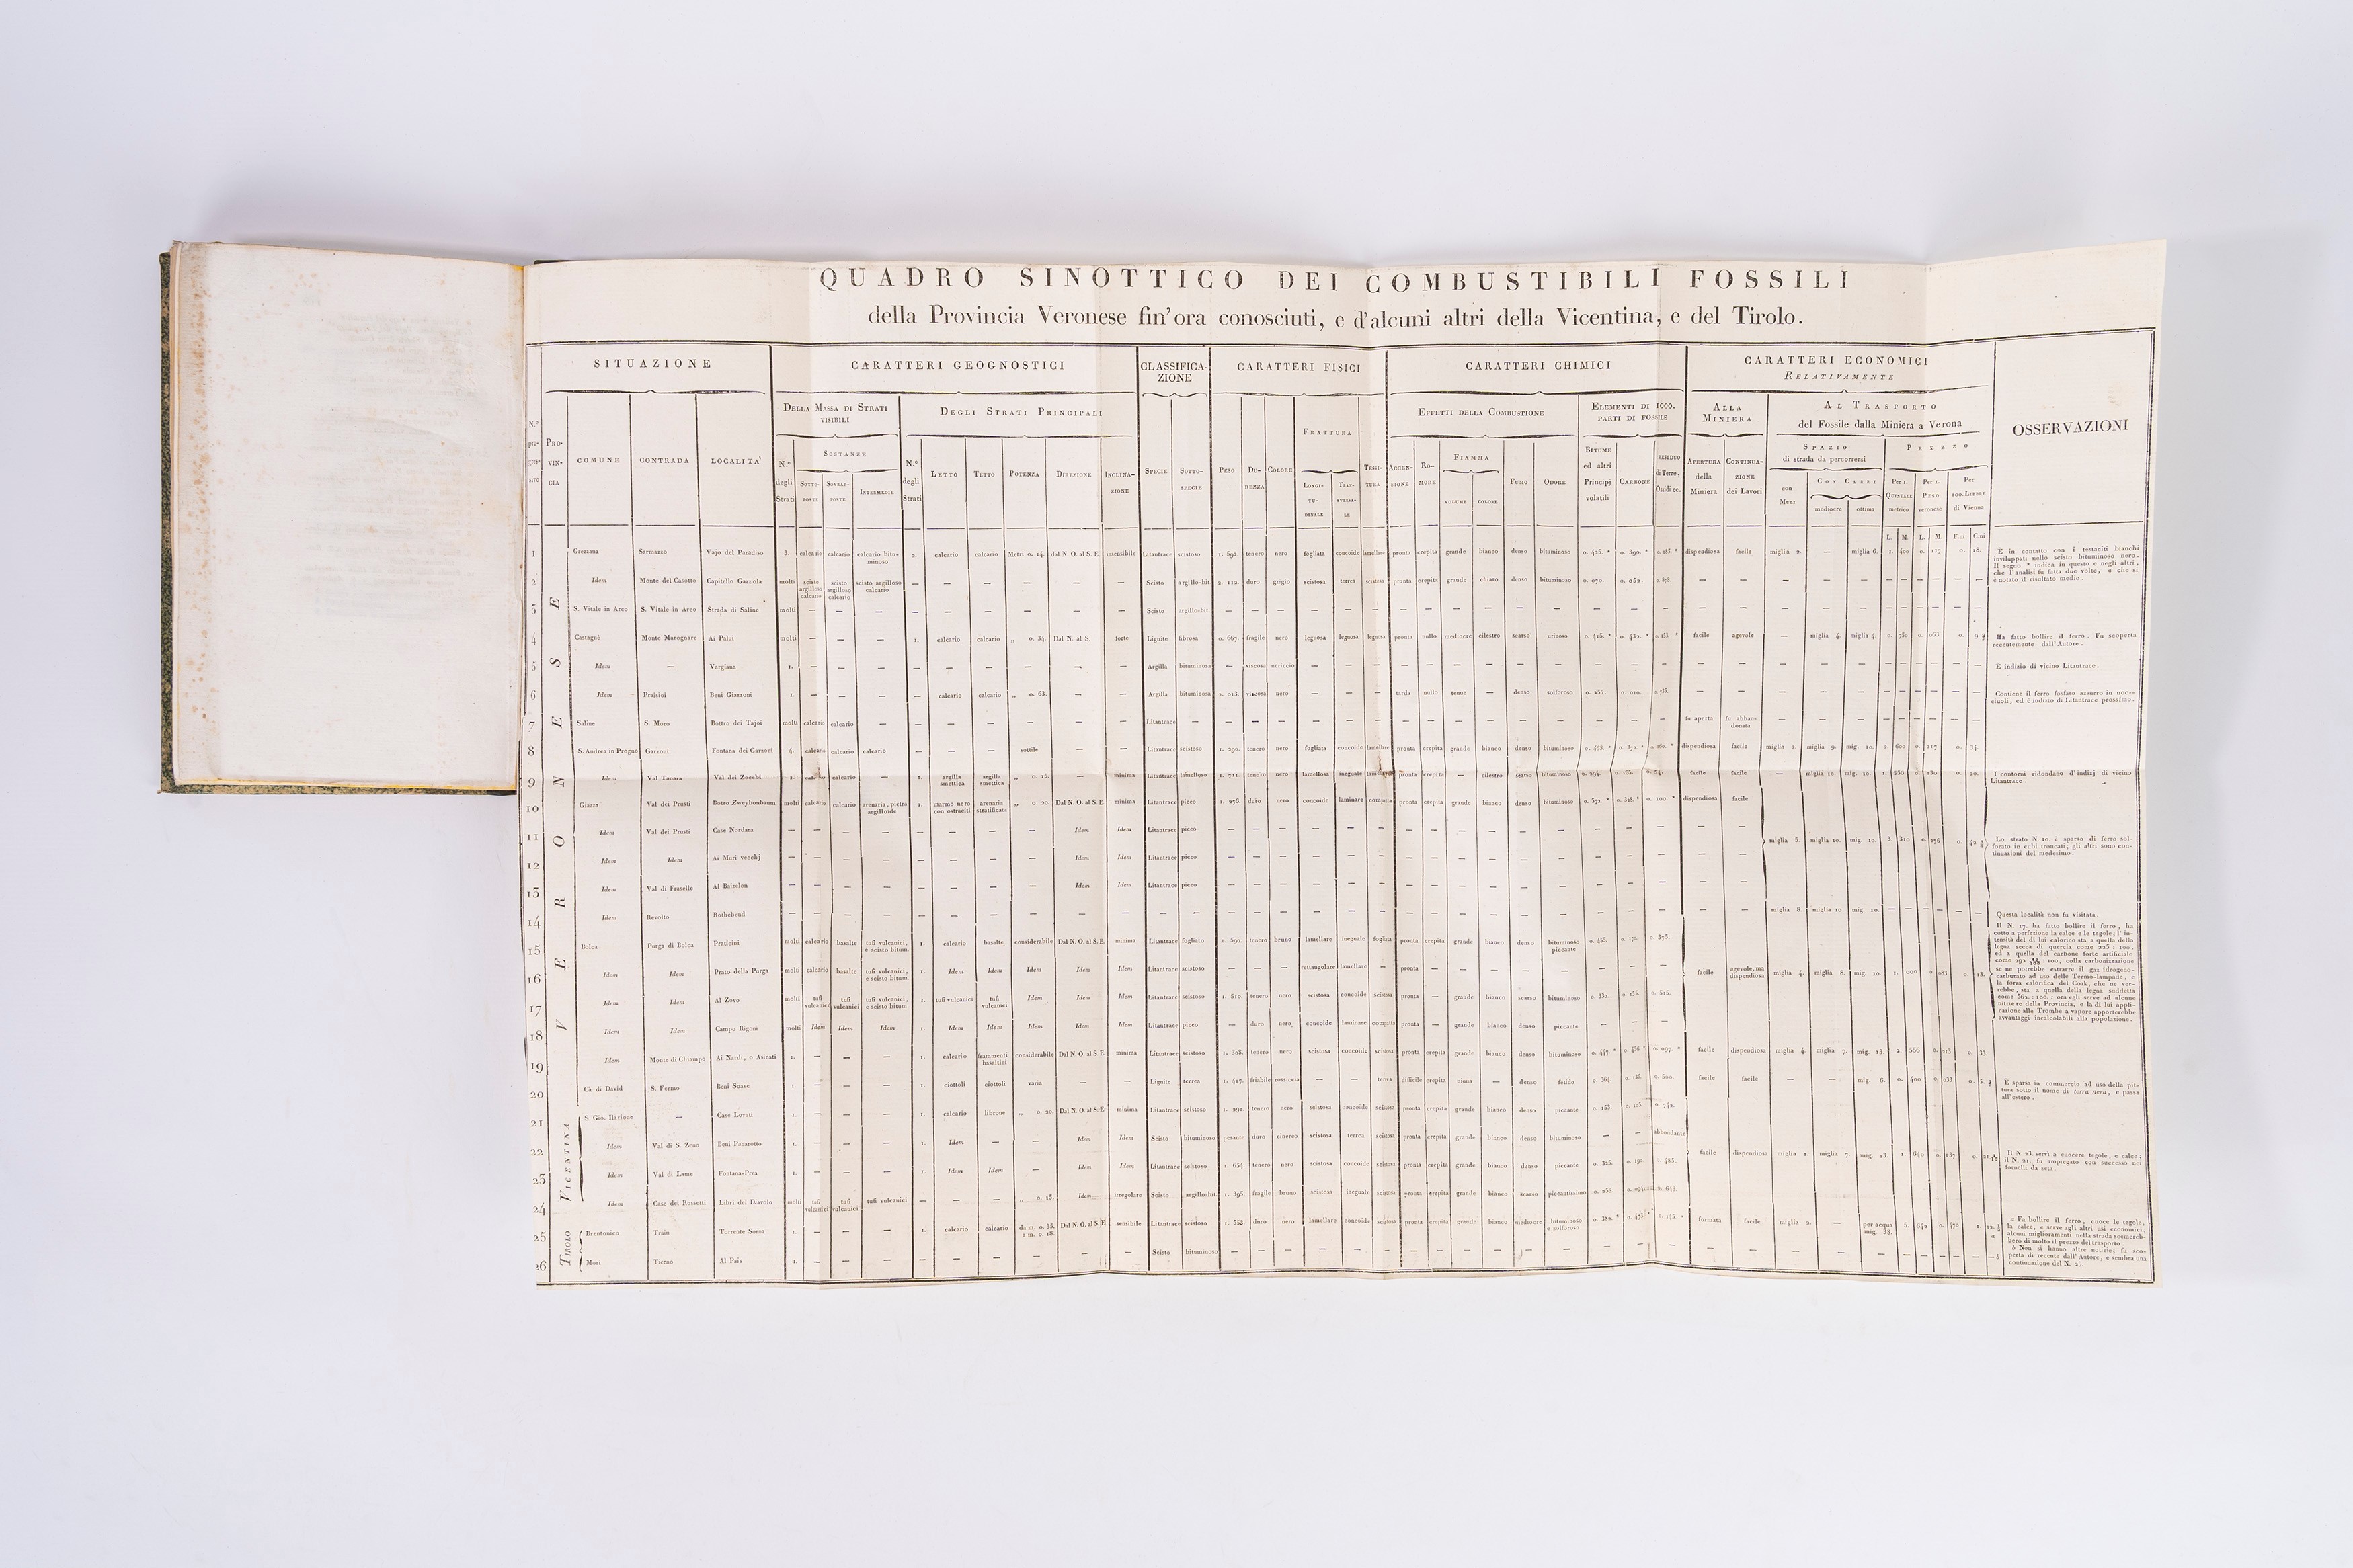 QUADRO SINOTTICO DEI COMBUSTIBILI FOSSILI
della Provincia Veronese fin' ora conosciuti, e d'alcuni altri della Vicentina, e del Tirolo.
SITUAZIONE
CARATTERI GEOGNOSTICI
CLASSIFICA-
ZIONE
CARATTERI FISICI
CARATTERI CHIMICI
CARATTERI ECONOMICI
RELATIVAMENTE
OSSERVAZIONI
DELLA MASSA DI STRATI
VISIBILI
DEGLI STRATI PRINCIPALI
EFFETTI DELLA COMBUSTIONE
ELEMENTI DI 1000.
PARTI DI FOSSILE
ALLA
MINIERA
AL TRASPORTO
del Fossile dalla Miniera a Verona
N.° progressivo
PRO-
VIN-
CIA
COMUNE
CONTRADA
LOCALITA'
N.°
degli
Strati
SOSTANZE
SOTTO-
POSTE
SOVRAP-
POSTE
INTERMEDIE
N.°
degli
Strati
LETTO
TETTO
POTENZA
DIREZIONE
INCLINA-
ZIONE
SPECIE
SOTTO-
SPECIE
PESO
DU-
REZZA
COLORE
FRATTURA
LONGI-
TU-
DINALE
TRAS-
VERSA-
LE
TESSI-
TURA
ACCEN-
SIONE
RO-
MORE
FIAMMA
VOLUME
COLORE
FUMO
ODORE
BITUME
ed altri
Principj
volatili
CARBONE
RESIDUO
di Terre,
Ossidi ec.
APERTURA
della
Miniera
CONTINUA-
ZIONE
dei Lavori
SPAZIO
di strada da percorrersi
con
MULI
CON CARRI
mediocre
ottima
PREZZO
Per 1.
QUINTALE
metrico
Per 1.
PESO
veronese
Per
100. LIBBRE
di Vienna
L. M. L. M. F.ni C.ni
VERONESE
1 Grezzana Sarmazzo Vajo del Paradiso 3. calcario calcario calcario bitu-
minoso 2. calcario calcario Metri 0. 14. dal N. O. al S. E. insensibile Litantrace scistoso 1. 592. tenero nero fogliata concoide lamellare pronta crepita grande bianco denso bituminoso dispendiosa facile miglia 2. — miglia 6. 1. 400
È in contatto con i testaciti bianchi
inviluppati nello scisto bituminoso nero.
Il segno * indica in questo e negli altri,
che l'analisi fu fatta due volte, e che si
è notato il risultato medio.
2 Idem Monte del Casotto Capitello Gazzola molti scisto argilloso calcario scisto argilloso calcario scisto argilloso calcario — — — — — — Scisto argillo-bit. 2. 112. duro grigio scistosa terrea scistosa pronta crepita grande chiaro denso bituminoso 0. 070. 0. 052. 0. 878.
3 S. Vitale in Arco S. Vitale in Arco Strada di Saline molti — — — Scisto argillo-bit.
4 Castagnè Monte Marognare Ai Palui molti — — — 1. calcario calcario „ 0. 34. Dal N. al S. forte Lignite fibrosa 0. 667. fragile nero legnosa legnosa legnosa pronta nullo mediocre cilestro scarso facile agevole — miglia 4. miglia 4.
Ha fatto bollire il ferro. Fu scoperta
recentemente dall' Autore.
5 Idem — Vargiana 1. — — — Argilla bituminosa — viscosa nericcio
È indizio di vicino Litantrace.
6 Idem Praisini Beni Giarzoni 1. — — — calcario calcario „ 0. 63. — — Argilla bituminosa 2. 013. viscosa nero — — — tarda nullo tenue — denso solforoso
Contiene il ferro fosfato azzurro in noc-
ciuoli, ed è indizio di Litantrace prossimo.
7 Saline S. Moro Bottro dei Tajni molti calcario calcario — Litantrace fu aperta fu abban-
donata
8 S. Andrea in Progno Garzoni Fontana dei Garzoni 4. calcario calcario calcario — — — sottile — — Litantrace scistoso 1. 290. tenero nero fogliata concoide lamellare pronta crepita grande bianco denso bituminoso dispendiosa facile miglia 2. miglia 9. mig. 10.
9 Idem Val Tanara Val dei Zocchi 1. calcario calcario — 1. argilla smettica argilla smettica „ 0. 15. — minima Litantrace lamelloso 1. 711. tenero nero lamellosa ineguale pronta crepita — cilestro scarso bituminoso facile facile — miglia 10. mig. 10.
I contorni ridondano d'indizj di vicino
Litantrace.
10 Giazza Val dei Prusti Botro Zweybonbaum molti calcario calcario arenaria, pietra argilloide 1. marmo nero con ostraciti arenaria stratificata „ 0. 20. Dal N. O. al S. E. minima Litantrace piceo 1. 276. duro nero concoide laminare compatta pronta crepita grande bianco denso bituminoso dispendiosa facile
11 Idem Val dei Prusti Case Nordara — — — — Idem Idem Litantrace piceo miglia 5. miglia 10. mig. 10.
Lo strato N. 10. è sparso di ferro sol-
forato in cubi troncati; gli altri sono con-
tinuazioni del medesimo.
12 Idem Idem Ai Muri vecchj — — — — Idem Idem Litantrace piceo
13 Idem Val di Fraselle Al Baizelon — — — — Idem Idem Litantrace piceo
14 Idem Revolto Rothebend — — — — miglia 8. miglia 10. mig. 10.
Questa località non fu visitata.
15 Bolca Purga di Bolca Praticini molti calcario basalte tufi vulcanici, e scisto bitum. 1. calcario basalte considerabile Dal N. O. al S. E. minima Litantrace fogliato 1. 590. tenero bruno lamellare ineguale fogliata pronta crepita grande bianco denso bituminoso piccante
16 Idem Idem Prato della Purga molti calcario basalte tufi vulcanici, e scisto bitum. 1. Idem Idem Idem Idem Idem Litantrace scistoso — — — rettangolare lamellare — pronta facile agevole, ma dispendiosa miglia 4. miglia 8. mig. 10.
17 Idem Idem Al Zovo molti tufi vulcanici tufi vulcanici tufi vulcanici, e scisto bitum 1. tufi vulcanici tufi vulcanici Idem Idem Idem Litantrace scistoso 1. 510. tenero nero scistosa concoide scistosa pronta — grande bianco scarso bituminoso
Il N. 17. ha fatto bollire il ferro, ha
cotto a perfezione la calce e le tegole; l' in-
tensità del di lui calorico sta a quella della
legna secca di quercia come 225 : 100,
ed a quella del carbone forte artificiale
come 292 : 100; colla carbonizzazione
se ne potrebbe estrarre il gas idrogeno-
carburato ad uso delle Termo-lampade, e
la forza calorifica del Coak, che ne ver-
rebbe, sta a quella della legna suddetta
come 562. : 100. : ora egli serve ad alcune
nitriere della Provincia, e la di lui appli-
cazione alle Trombe a vapore apporterebbe
avvantaggi incalcolabili alla popolazione.
18 Idem Idem Campo Rigoni molti Idem Idem Idem 1. Idem Idem Idem Idem Idem Litantrace piceo — duro nero concoide laminare compatta pronta — grande bianco denso piccante
19 Idem Monte di Chiampo Ai Nardi, o Asinati 1. — — — 1. calcario frammenti basaltini considerabile Dal N. O. al S. E. minima Litantrace scistoso 1. 308. tenero nero scistosa concoide scistosa pronta crepita grande bianco denso bituminoso facile dispendiosa miglia 4 miglia 7. mig. 13. 2. 556
20 Cà di David S. Fermo Beni Soave 1. — — — 1. ciottoli ciottoli varia — — Lignite terrea 1. 417. friabile rossiccia — — terrea difficile crepita niuna — denso fetido facile facile — — mig. 6. 0. 400
È sparsa in commercio ad uso della pit-
tura sotto il nome di terra nera, e passa
all' estero.
VICENTINA
21 S. Gio. Ilarione — Case Lovati 1. — — — 1. calcario „ 0. 20. Dal N. O. al S. E. minima Litantrace scistoso 1. 291. tenero nero scistosa concoide scistosa pronta crepita grande bianco denso piccante
22 Idem Val di S. Zeno Beni Panarotto 1. — — — 1. Idem — — Idem Idem Scisto bituminoso pesante duro cinereo scistosa terrea scistosa pronta crepita grande bianco denso bituminoso — — abbondante facile dispendiosa miglia 1. miglia 7. mig. 13. 1. 640
23 Idem Val di Lamo Fontana-Pera 1. — — — 1. Idem Idem — Idem Idem Litantrace scistoso 1. 654. tenero nero scistosa concoide scistosa pronta crepita grande bianco denso piccante
Il N. 23. servì a cuocere tegole, e calce;
il N. 21. fu impiegato con successo nei
fornelli da seta.
24 Idem Case dei Rossetti Libri del Diavolo molti tufi vulcanici tufi vulcanici tufi vulcanici — — — „ 0. 15. Idem irregolare Scisto argillo-bit. 1. 395. fragile bruno scistosa ineguale scistosa pronta crepita grande bianco scarso piccantissimo
TIROLO
25 Brentonico Train Torrente Sorna 1. — — — 1. calcario calcario da m. 0. 35. a m. 0. 18. Dal N. O. al S. E. sensibile Litantrace scistoso 1. 333. duro nero lamellare concoide scistosa pronta crepita grande bianco mediocre bituminoso e sulfuroso formata facile. miglia 2. — per acqua mig. 38. 5. 642
a Fa bollire il ferro, cuoce le tegole,
la calce, e serve agli altri usi economici;
alcuni miglioramenti nella strada scemereb-
bero di molto il prezzo del trasporto.
26 Mori Tierno Al Pais 1. — — — Scisto bituminoso
b Non si hanno altre notizie; fu sco-
perta di recente dall' Autore, e sembra una
continuazione del N. 25.